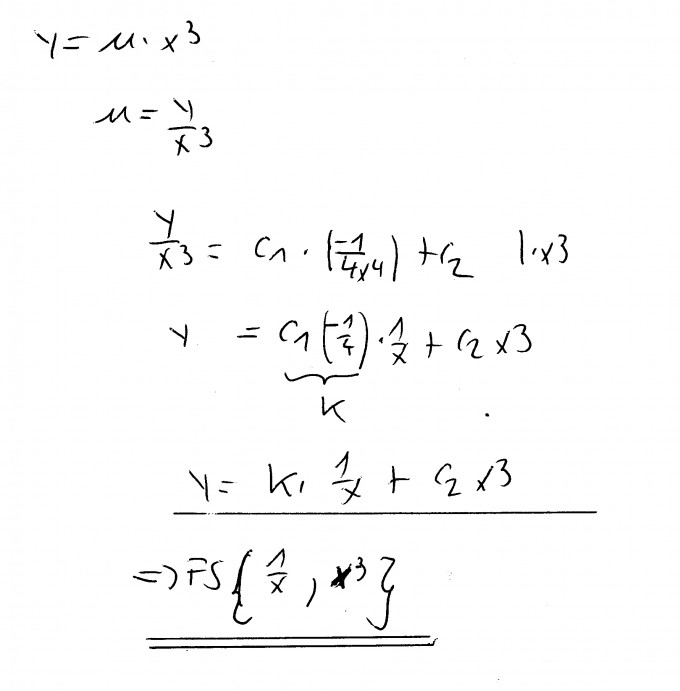 y = u · x³
u = y/x³
y/x³ = C₁ · (-1/4x⁴) + C₂ | · x³
y = C₁ (-1/4) · 1/x + C₂ x³
K
y = K · 1/x + C₂ x³
=> FS { 1/x , x³ }